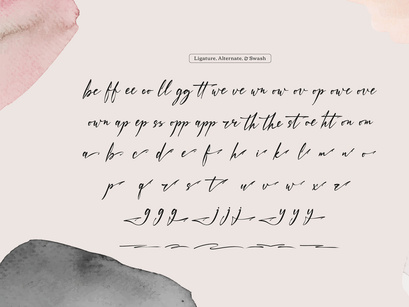 Ligature, Alternate, & Swash
be ff ee co ll gg tt we ve wn ow ov op owe ove
own ap ep ss opp app rr th the st oe ht on om
a b c d e f h i k l m n o
p q r s t u v w x z
g g g j j j y y y